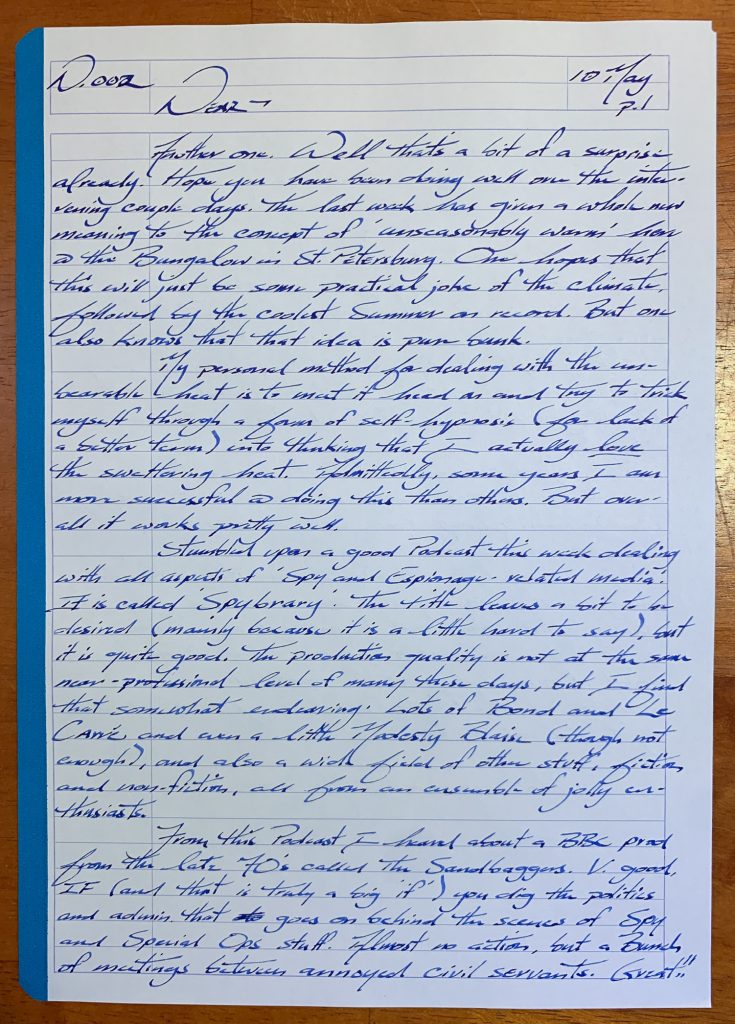 N.002
10 May
Dear—
p.1
Another one. Well that's a bit of a surprise
already. Hope you have been doing well over the inter-
vening couple days. The last week has given a whole new
meaning to the concept of 'unseasonably warm' here
@ the Bungalow in St. Petersburg. One hopes that
this will just be some practical joke of the climate,
followed by the coolest Summer on record. But one
also knows that that idea is pure bunk.
My personal method for dealing with the un-
bearable heat is to meet it head on and try to trick
myself through a form of self-hypnosis (for lack of
a better term) into thinking that I actually love
the sweltering heat. Admittedly, some years I am
more successful @ doing this than others. But over-
all it works pretty well.
Stumbled upon a good Podcast this week dealing
with all aspects of 'Spy and Espionage-related media'.
It is called 'Spybrary'. The title leaves a bit to be
desired (mainly because it is a little hard to say), but
it is quite good. The production quality is not at the same
near-professional level of many these days, but I find
that somewhat endearing. Lots of Bond and Le
Carré, and even a little Modesty Blaise (though not
enough), and also a wide field of other stuff, fiction
and non-fiction, all from an ensemble of jolly en-
thusiasts.
From this Podcast I heard about a BBC prod
from the late 70's called The Sandbaggers. V. good,
IF (and that is truly a big 'if') you dig the politics
and admin. that goes on behind the scenes of Spy
and Special Ops stuff. Almost no action, but a Bunch
of meetings between annoyed civil servants. Great!!